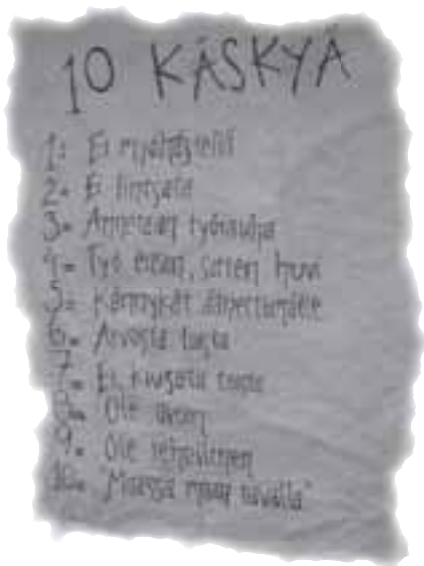 10 KÄSKYÄ
1. Ei myöhästellä
2. Ei lintsata
3. Annetaan työrauha
4. Työ ensin, sitten huvi
5. Kännykät äänettömälle
6. Arvosta toista
7. Ei kiusata toista
8. Ole avoin
9. Ole rehellinen
10. "Maassa maan tavalla"